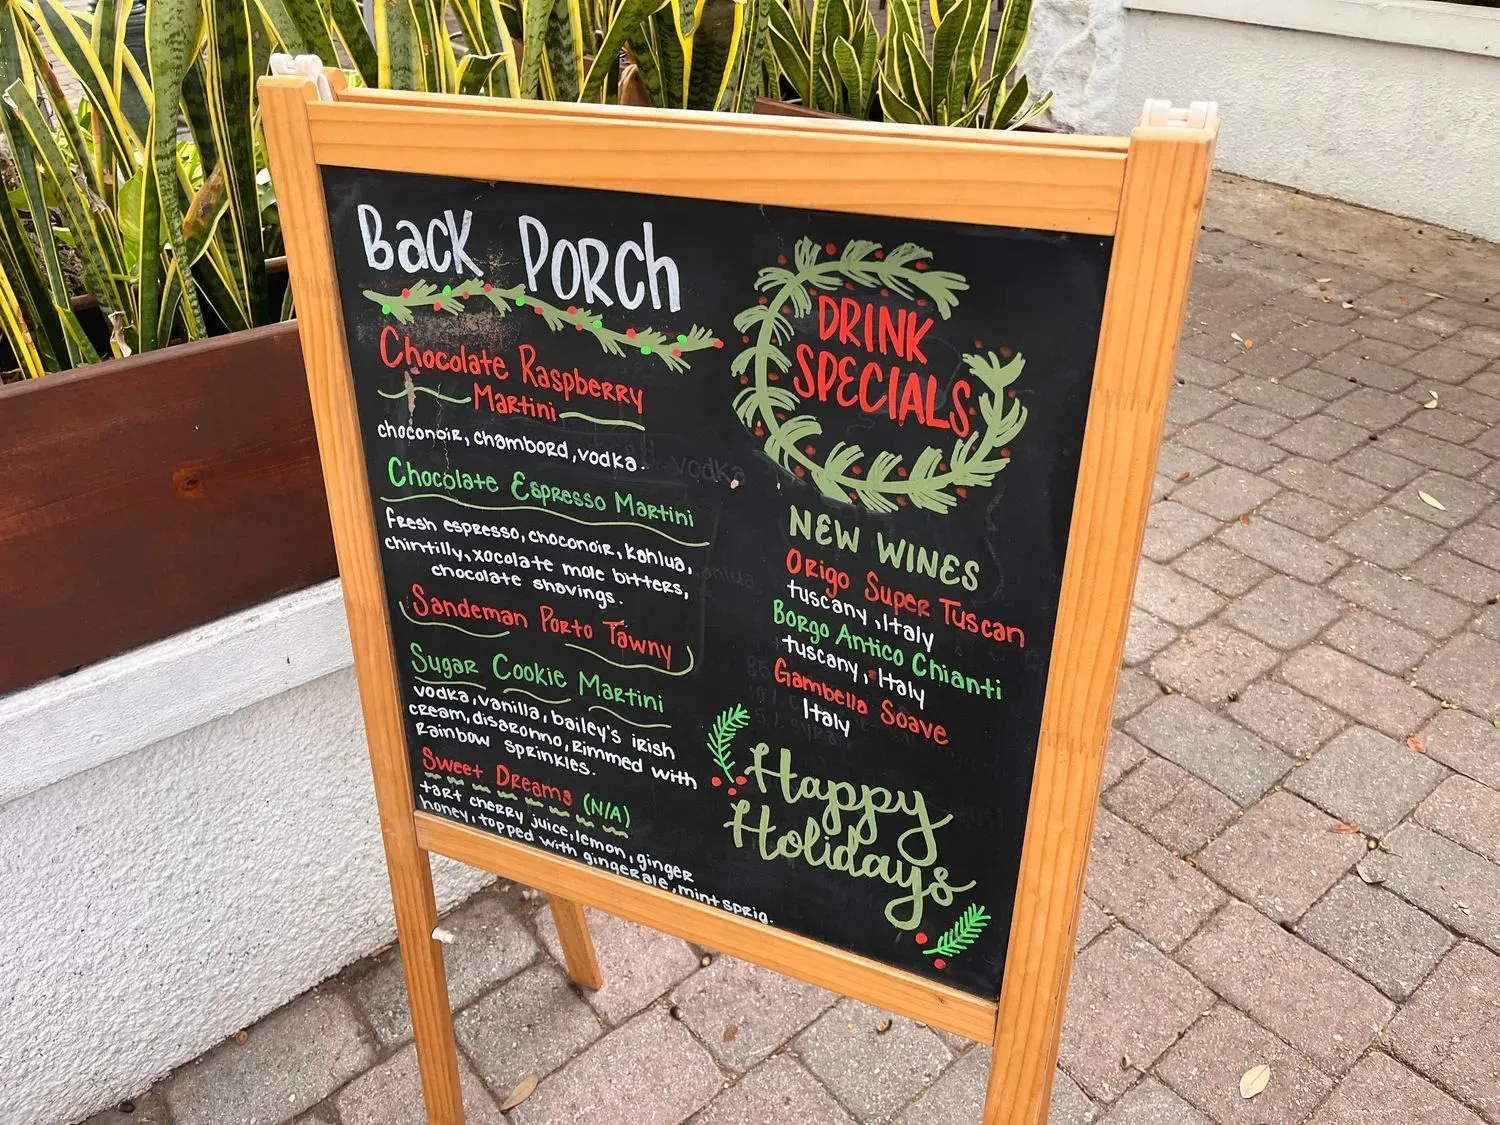 Back Porch
Chocolate Raspberry
Martini
choconoir, chambord, vodka.
Chocolate Espresso Martini
fresh espresso, choconoir, kahlua,
chintilly, xocolate mole bitters,
chocolate shavings.
Sandeman Porto Tawny
Sugar Cookie Martini
vodka, vanilla, bailey's irish
cream, disarohno, rimmed with
rainbow sprinkles.
Sweet Dreams (N/A)
tart cherry juice, lemon, ginger
honey, topped with gingerale, mint sprig.
DRINK
SPECIALS
NEW WINES
Origo Super Tuscan
tuscany, Italy
Borgo Antico Chianti
tuscany, Italy
Gambella Soave
Italy
Happy
Holidays